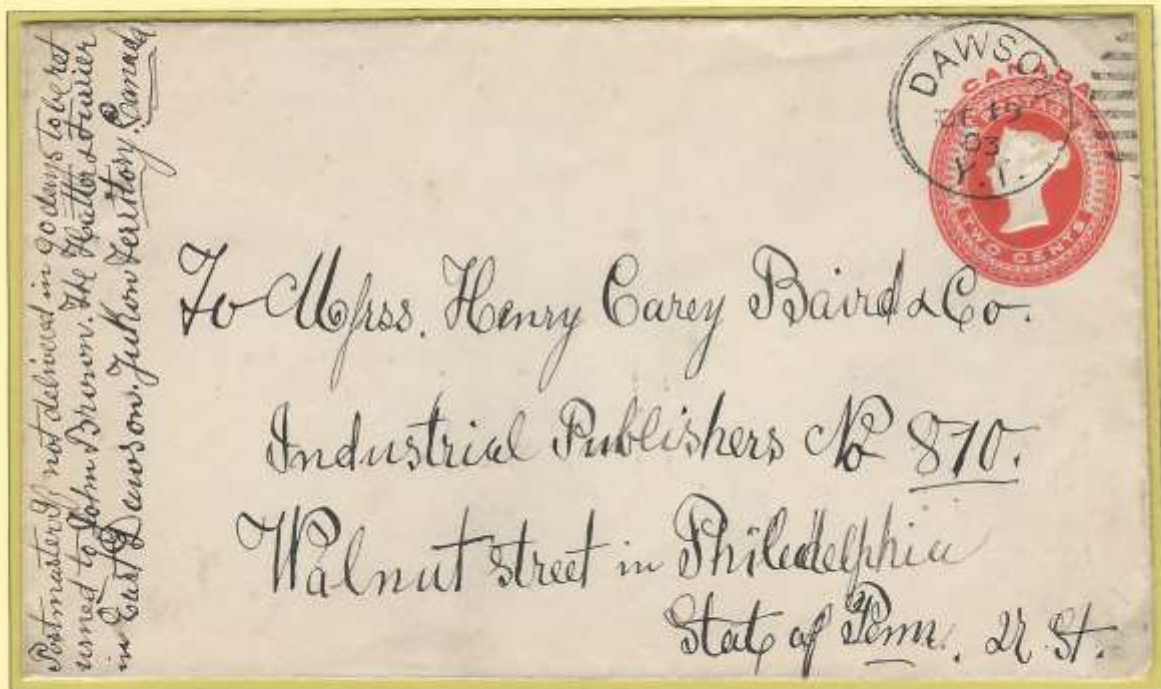 Postmaster If not delivered in 90 days to be ret
urned to John Brown. The Hatter & Furrier
in East Dawson. Yukon Territory. Canada
DAWSON
DE 19
03
Y.T.
CANADA
POSTAGE
TWO CENTS
To Mfrss. Henry Carey Baird & Co.
Industrial Publishers No 810.
Walnut Street in Philedelphia
Stat of Penn. U. St.